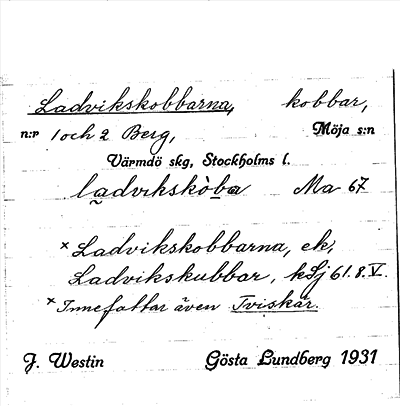 Ladvikskobbarna, kobbar,
n:r 1 och 2 Berg, Möja s:n
Värmdö skg, Stockholms l.
Ma 67
× Ladvikskobbarna, ek,
Ladvikskubbar, kSj 61.8.V.
× Innefattar även Tviskär.
J. Westin Gösta Lundberg 1931